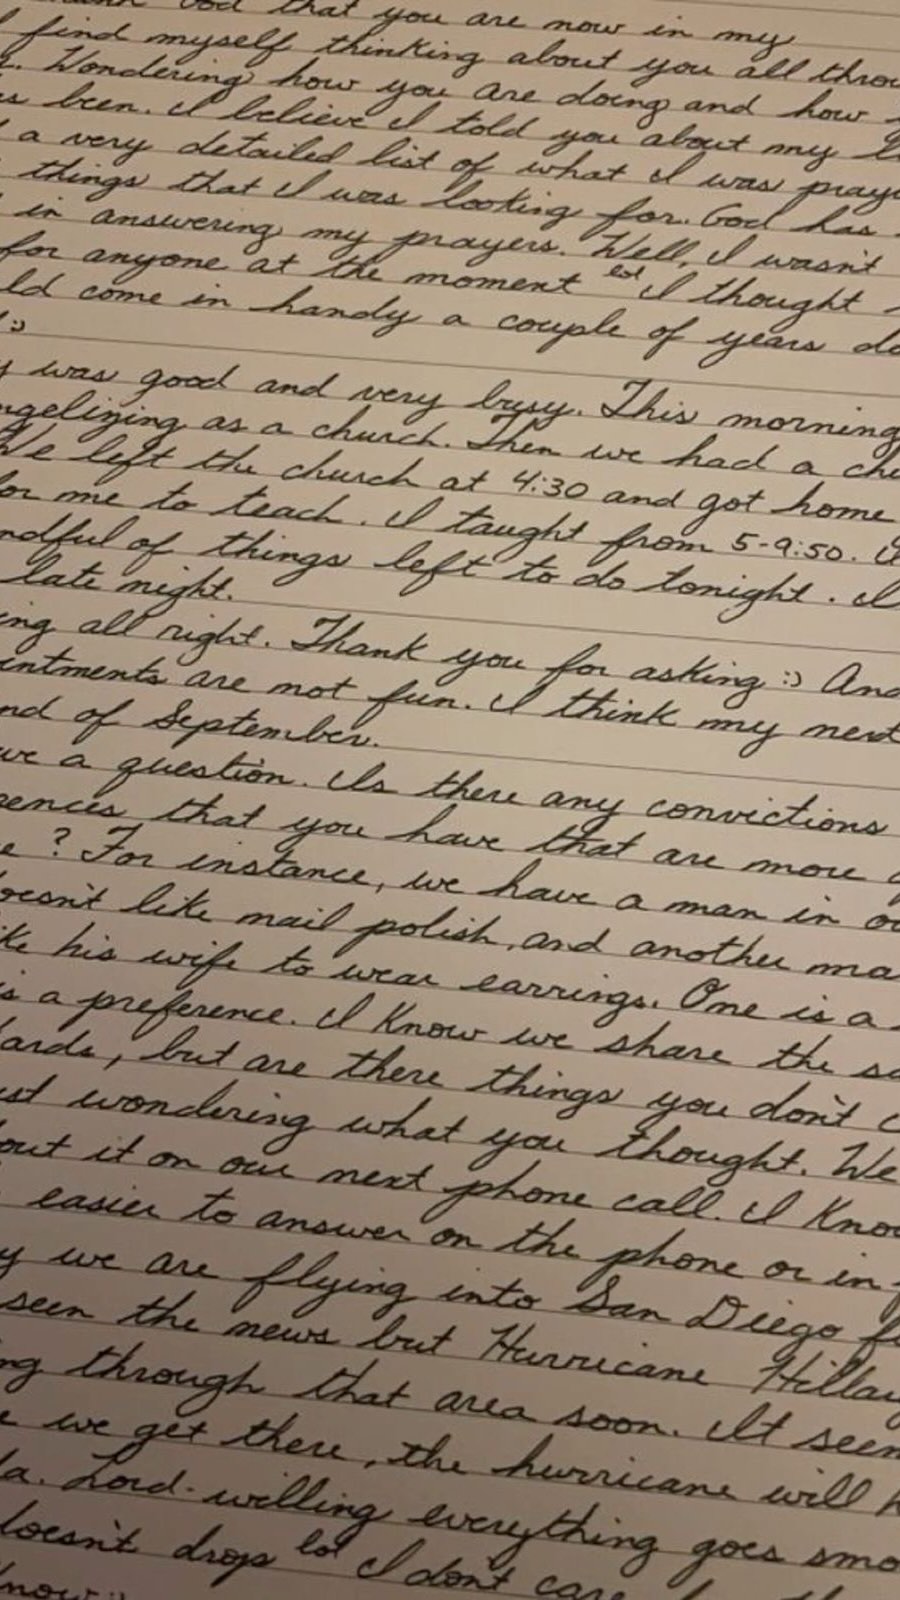 God that you are now in my
find myself thinking about you all throu
Wondering how you are doing and how
s been. I believe I told you about my li
a very detailed list of what I was prayi
things that I was looking for. God has
in answering my prayers. Well, I wasn't
for anyone at the moment lol I thought
ld come in handy a couple of years do
:)
y was good and very busy. This morning
ngelizing as a church. Then we had a chu
We left the church at 4:30 and got home
for me to teach. I taught from 5-9:50. I
ndful of things left to do tonight. I
late night.
ing all right. Thank you for asking :) And
intments are not fun. I think my next
nd of September.
ve a question. Is there any convictions
rences that you have that are more
e? For instance, we have a man in ou
doesn't like nail polish, and another ma
ike his wife to wear earrings. One is a
is a preference. I know we share the sa
dards, but are there things you don't c
ust wondering what you thought. We
out it on our next phone call. I know
easier to answer on the phone or in
y we are flying into San Diego f
seen the news but Hurricane Hillay
ng through that area soon. It seem
e we get there, the hurricane will h
la. Lord-willing everything goes smo
doesn't drop lol I don't care
know :)